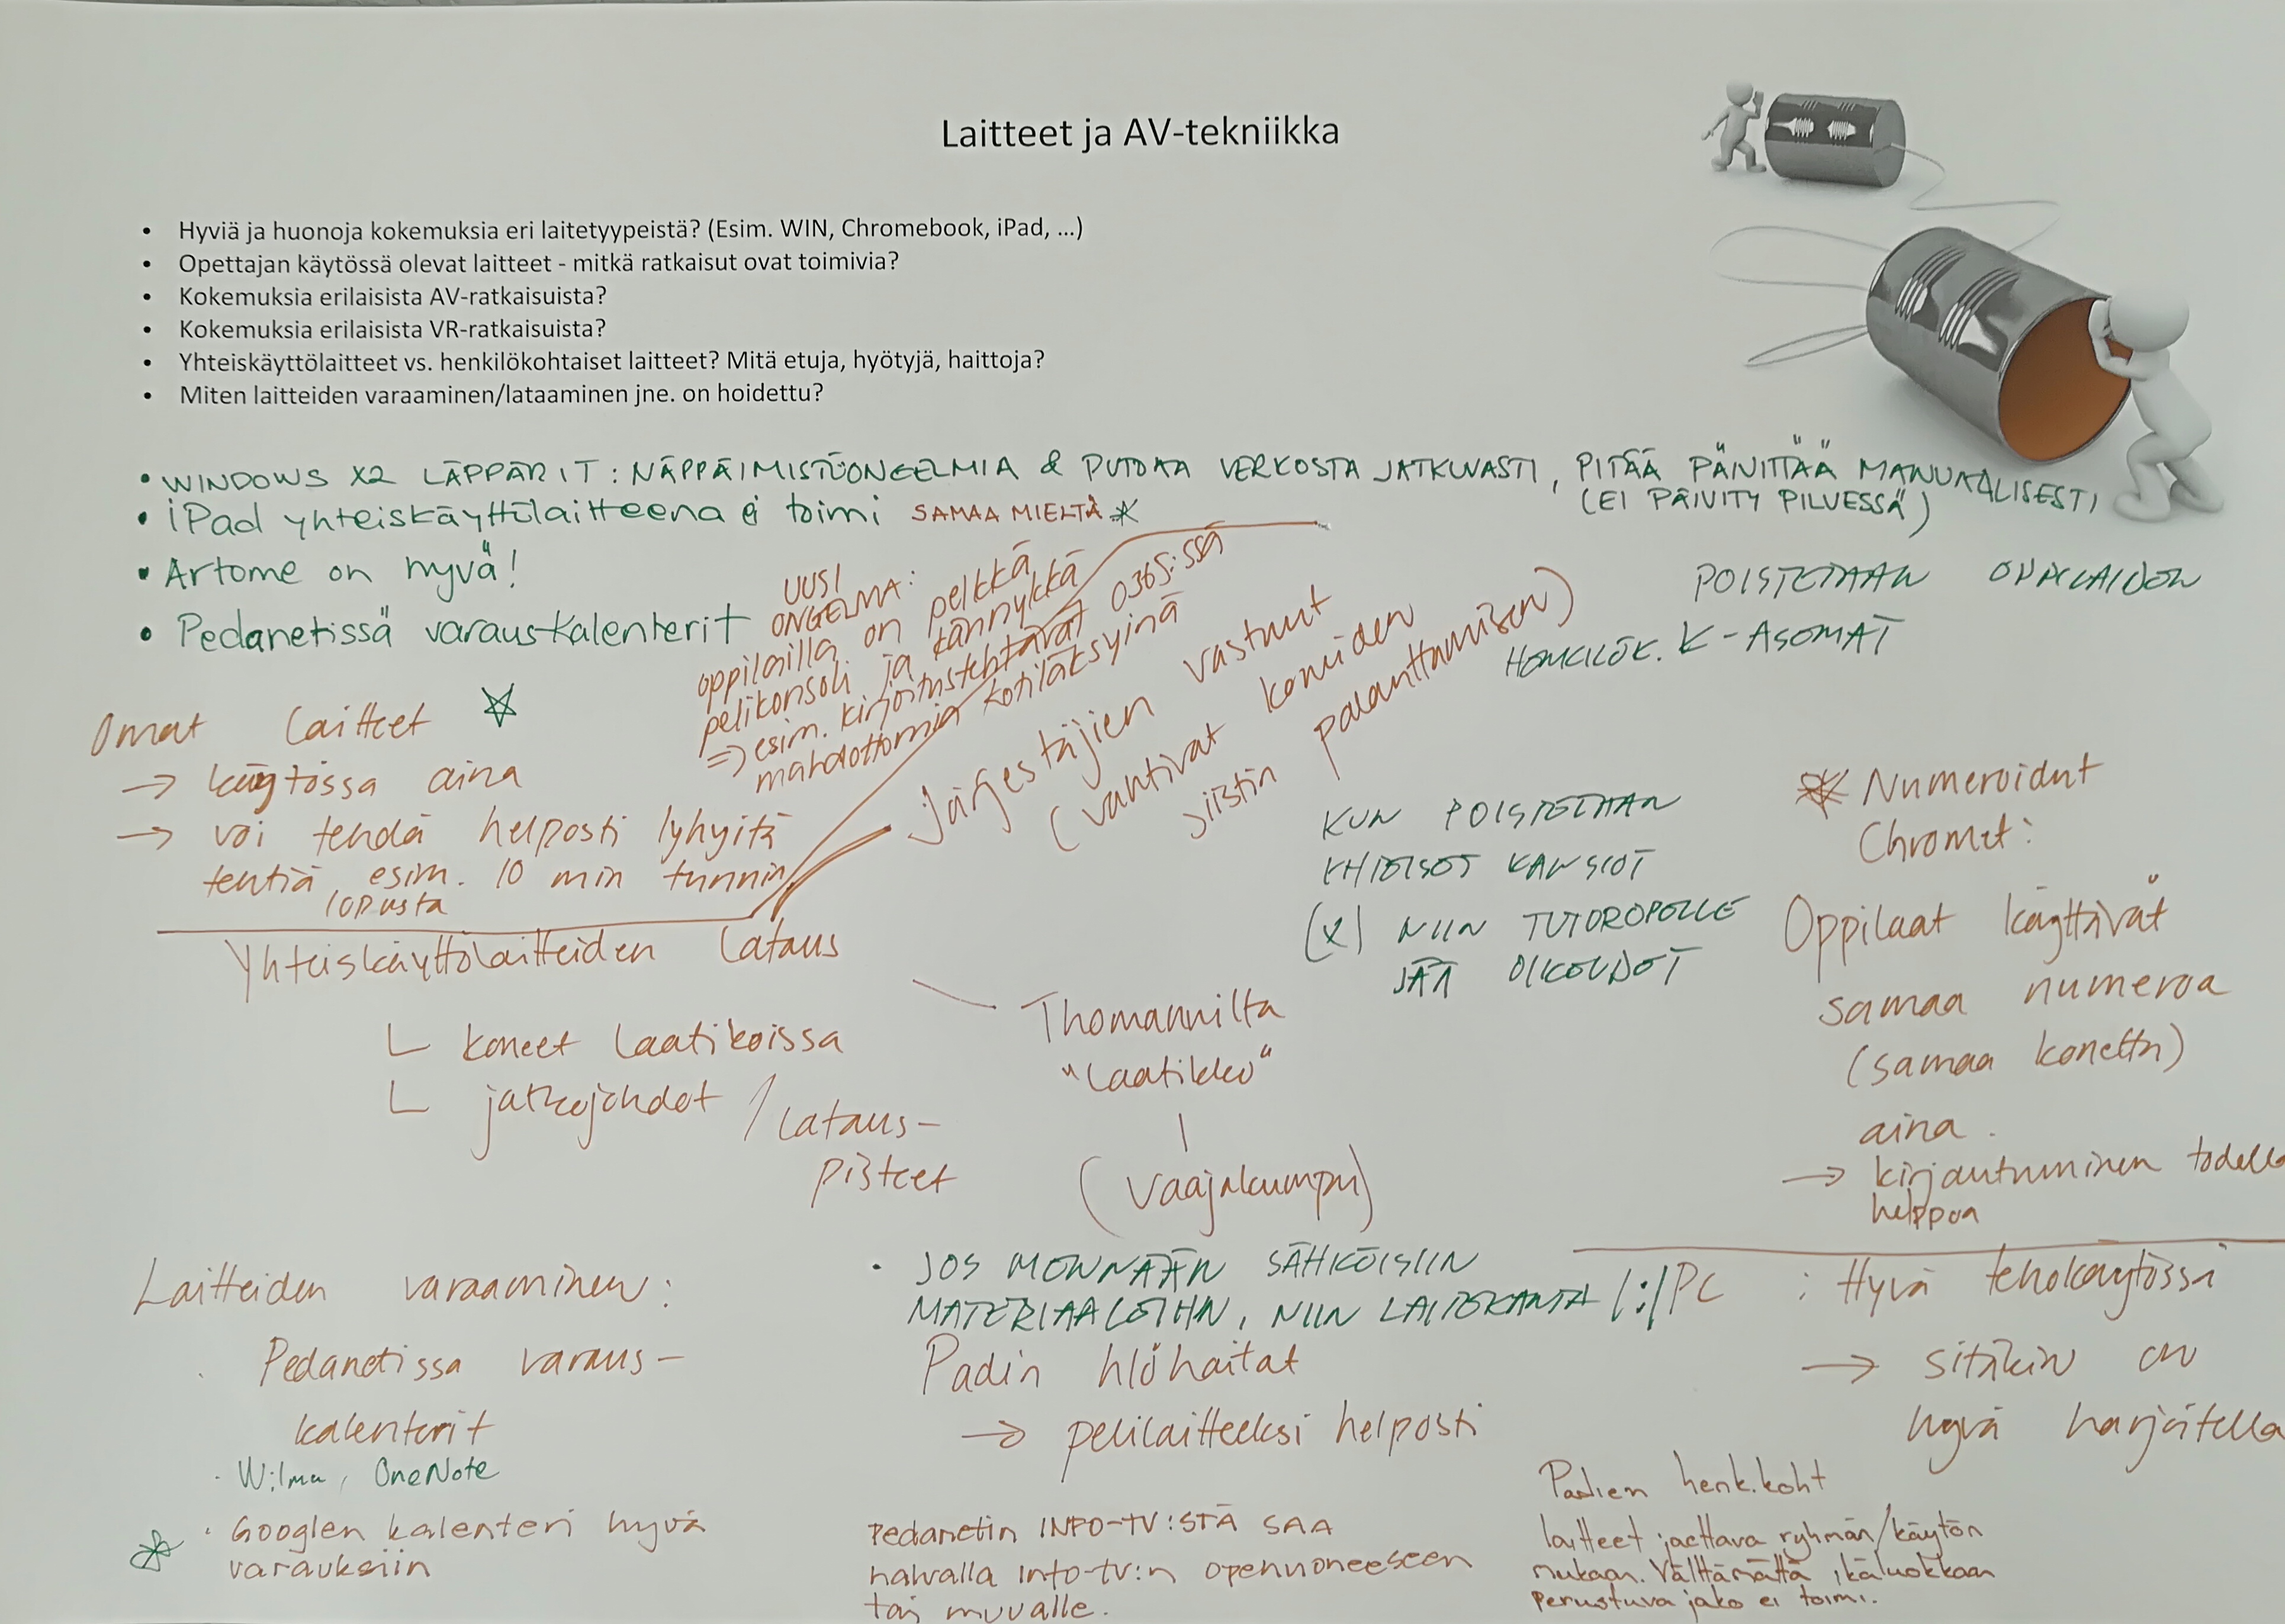 Laitteet ja AV-tekniikka
• Hyviä ja huonoja kokemuksia eri laitetyypeistä? (Esim. WIN, Chromebook, iPad, ...)
• Opettajan käytössä olevat laitteet - mitkä ratkaisut ovat toimivia?
• Kokemuksia erilaisista AV-ratkaisuista?
• Kokemuksia erilaisista VR-ratkaisuista?
• Yhteiskäyttölaitteet vs. henkilökohtaiset laitteet? Mitä etuja, hyötyjä, haittoja?
• Miten laitteiden varaaminen/lataaminen jne. on hoidettu?
• WINDOWS X2 LÄPPÄRIT: NÄPPÄIMISTÖONGELMIA & PUTOAA VERKOSTA JATKUVASTI, PITÄÄ PÄIVITTÄÄ MANUAALISESTI
(EI PÄIVITY PILVESSÄ)
• iPad yhteiskäyttölaitteena ei toimi SAMAA MIELTÄ
• Artome on hyvä!
• Pedanetissä varauskalenterit
UUSI
ONGELMA:
oppilailla on pelkkä
pelikonsoli ja kännykkä
=> esim. kirjoitustehtävät O365:ssä
mahdottomia kotiläksyinä
POISTETAAN OPPILAIDEN
HENKILÖK. K-ASEMAT
Omat laitteet
→ käytössä aina
→ voi tehdä helposti lyhyitä
tentiä, esim. 10 min tunnin
lopusta
Järjestäjien vastuut
(vahtivat koneiden
siistin palauttamisen)
KUN POISTETAAN
YHTEISET KANSIOT
(X) NIIN TUTOROPELLE
JÄÄ OIKEUDET
Numeroidut
Chromet:
Oppilaat käyttävät
samaa numeroa
(samaa konetta)
aina.
→ kirjautuminen todella
helppoa
Yhteiskäyttölaitteiden lataus
koneet laatikoissa
jatkojohdot / lataus-
pisteet
Thomannilta
"laatikko"
(Vaajakumpu)
Laitteiden varaaminen:
Pedanetissa varaus-
kalenterit
· Wilma, OneNote
· Googlen kalenteri hyvä
varauksiin
• JOS MENNÄÄN SÄHKÖISIIN
MATERIAALEIHIN, NIIN LAITEKANTA
Padin hlöhaitat
→ pelilaitteeksi helposti
PC : Hyvä tehokäytössä
→ sitäkin on
hyvä harjoitella
Pedanetin INFO-TV:STÄ SAA
halvalla info-tv:n opehuoneeseen
tai muualle.
Padien henk.koht
laitteet jaettava ryhmän/käytön
mukaan. Välttämättä ikäluokkaan
perustuva jako ei toimi.